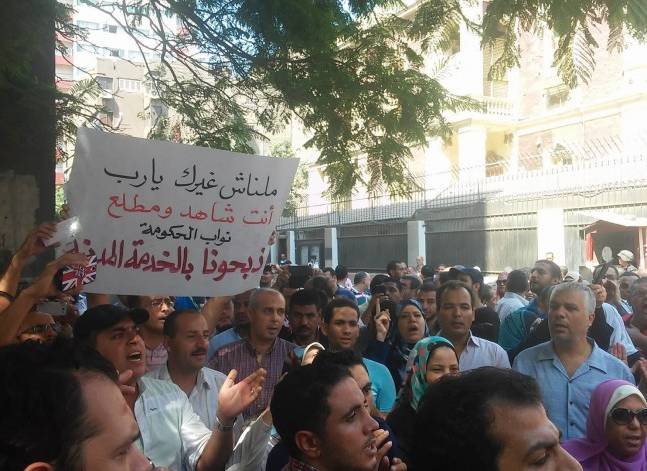 ملناش غيرك يارب
أنت شاهد ومطلع
نواب الحكومة
ذبحونا بالخدمة المدنية